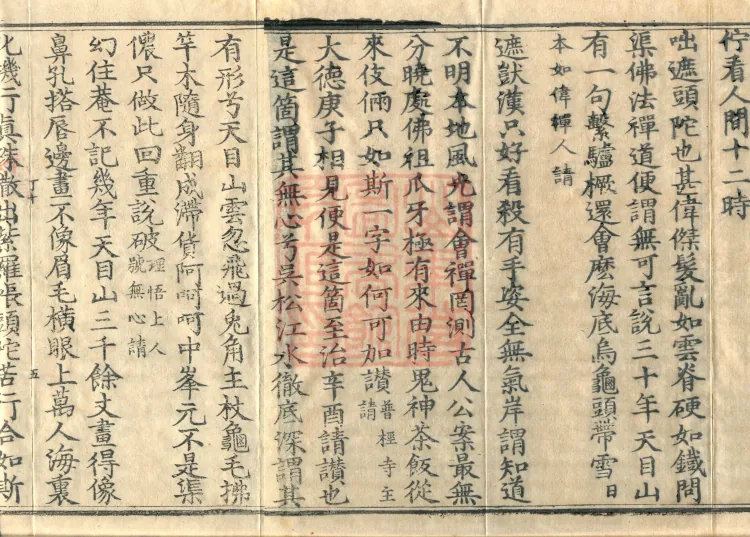 佇看人間十二時
咄遮頭陀也甚偉傑髮亂如雲脊硬如鐵問
渠佛法禪道便謂無可言說三十年天目山
有一句繫驢橛還會麽海底烏龜頭帶雪日
本如偉禪人請
遮獃漢只好看殺有手姿全無氣岸謂知道
不明本地風光謂會禪罔測古人公案最無
分曉處佛祖爪牙極有來由時鬼神茶飯從
來伎倆只如斯一字如何可加讃普檉寺主請
大德庚子相見便是這箇至治辛酉請讃也
是這箇謂其無心兮吳松江水徹底深謂其
有形兮天目山雲忽飛過兎角主杖龜毛拂
竿木隨身翻成滯貨阿呵呵中峯元不是渠
儂只做此回重說破理悟上人號無心請
幻住菴不記幾年天目山三千餘丈畫得像
鼻孔搭唇邊畫不像眉毛橫眼上萬人海裏
化機行眞珠撒出紫羅帳頭陀苦行合如斯
丁十
五